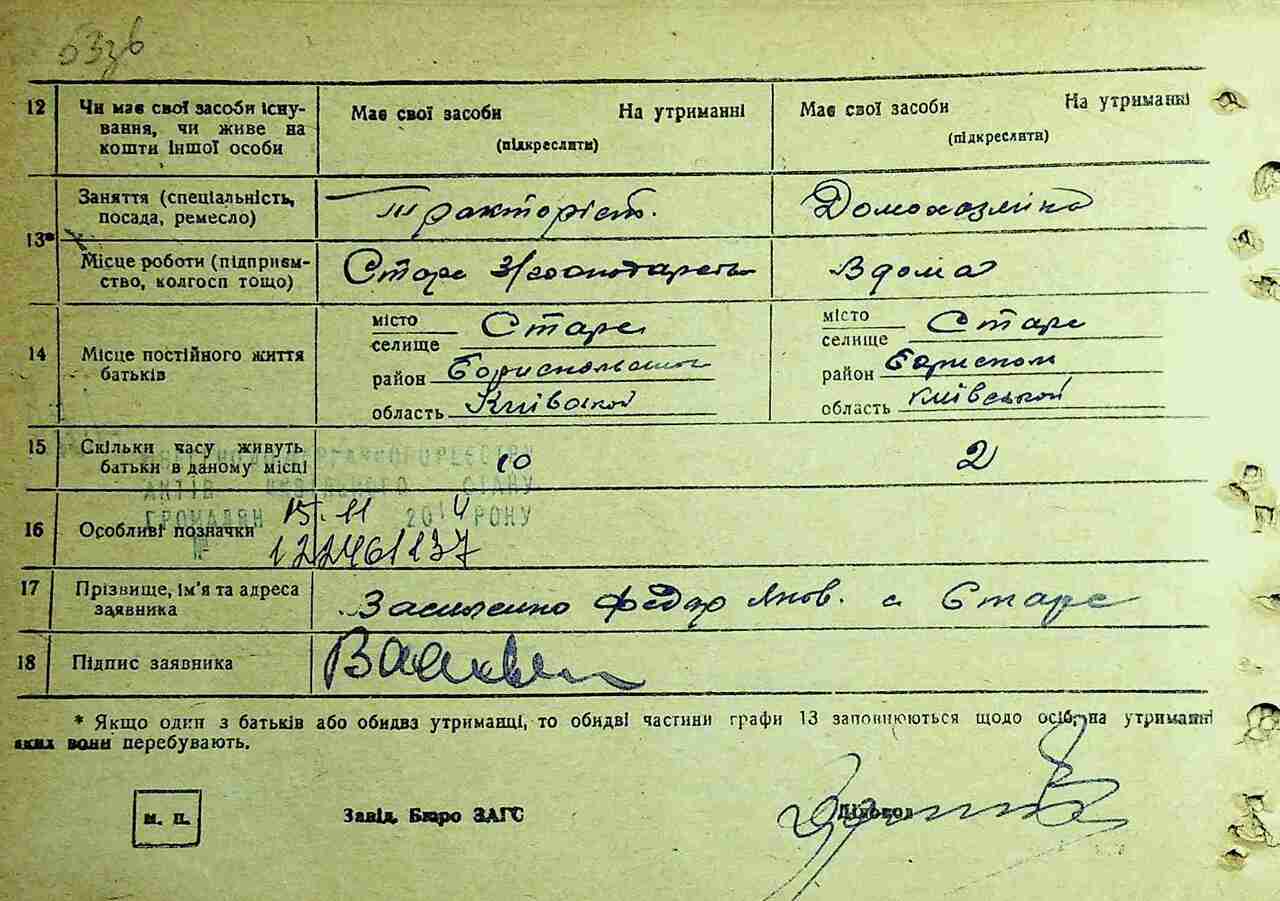 12 Чи має свої засоби існу-
вання, чи живе на
кошти іншої особи
Має свої засоби На утриманні
(підкреслити)
Має свої засоби На утриманні
(підкреслити)
13*
Заняття (спеціальність,
посада, ремесло)
Тракторіст.
Домохазяйка
Місце роботи (підприєм-
ство, колгосп тощо)
Старе
Вдома
14 Місце постійного життя
батьків
місто
селище Старе
район
область Київської
місто
селище Старе
район Бориспом
область Київської
15 Скільки часу живуть
батьки в даному місці
10
2
АКТІВ СТАНУ
ГРОМАДЯН 15.11 2014 РОКУ
№ 122461137
16 Особливі позначки
17 Прізвище, ім'я та адреса
заявника
Федар Яков. с Старе
18 Підпис заявника
* Якщо один з батьків або обидва утриманці, то обидві частини графи 13 заповнюються щодо осіб, на утриманні
яких вони перебувають.
м. п.
Завід. Бюро ЗАГС
Діловод